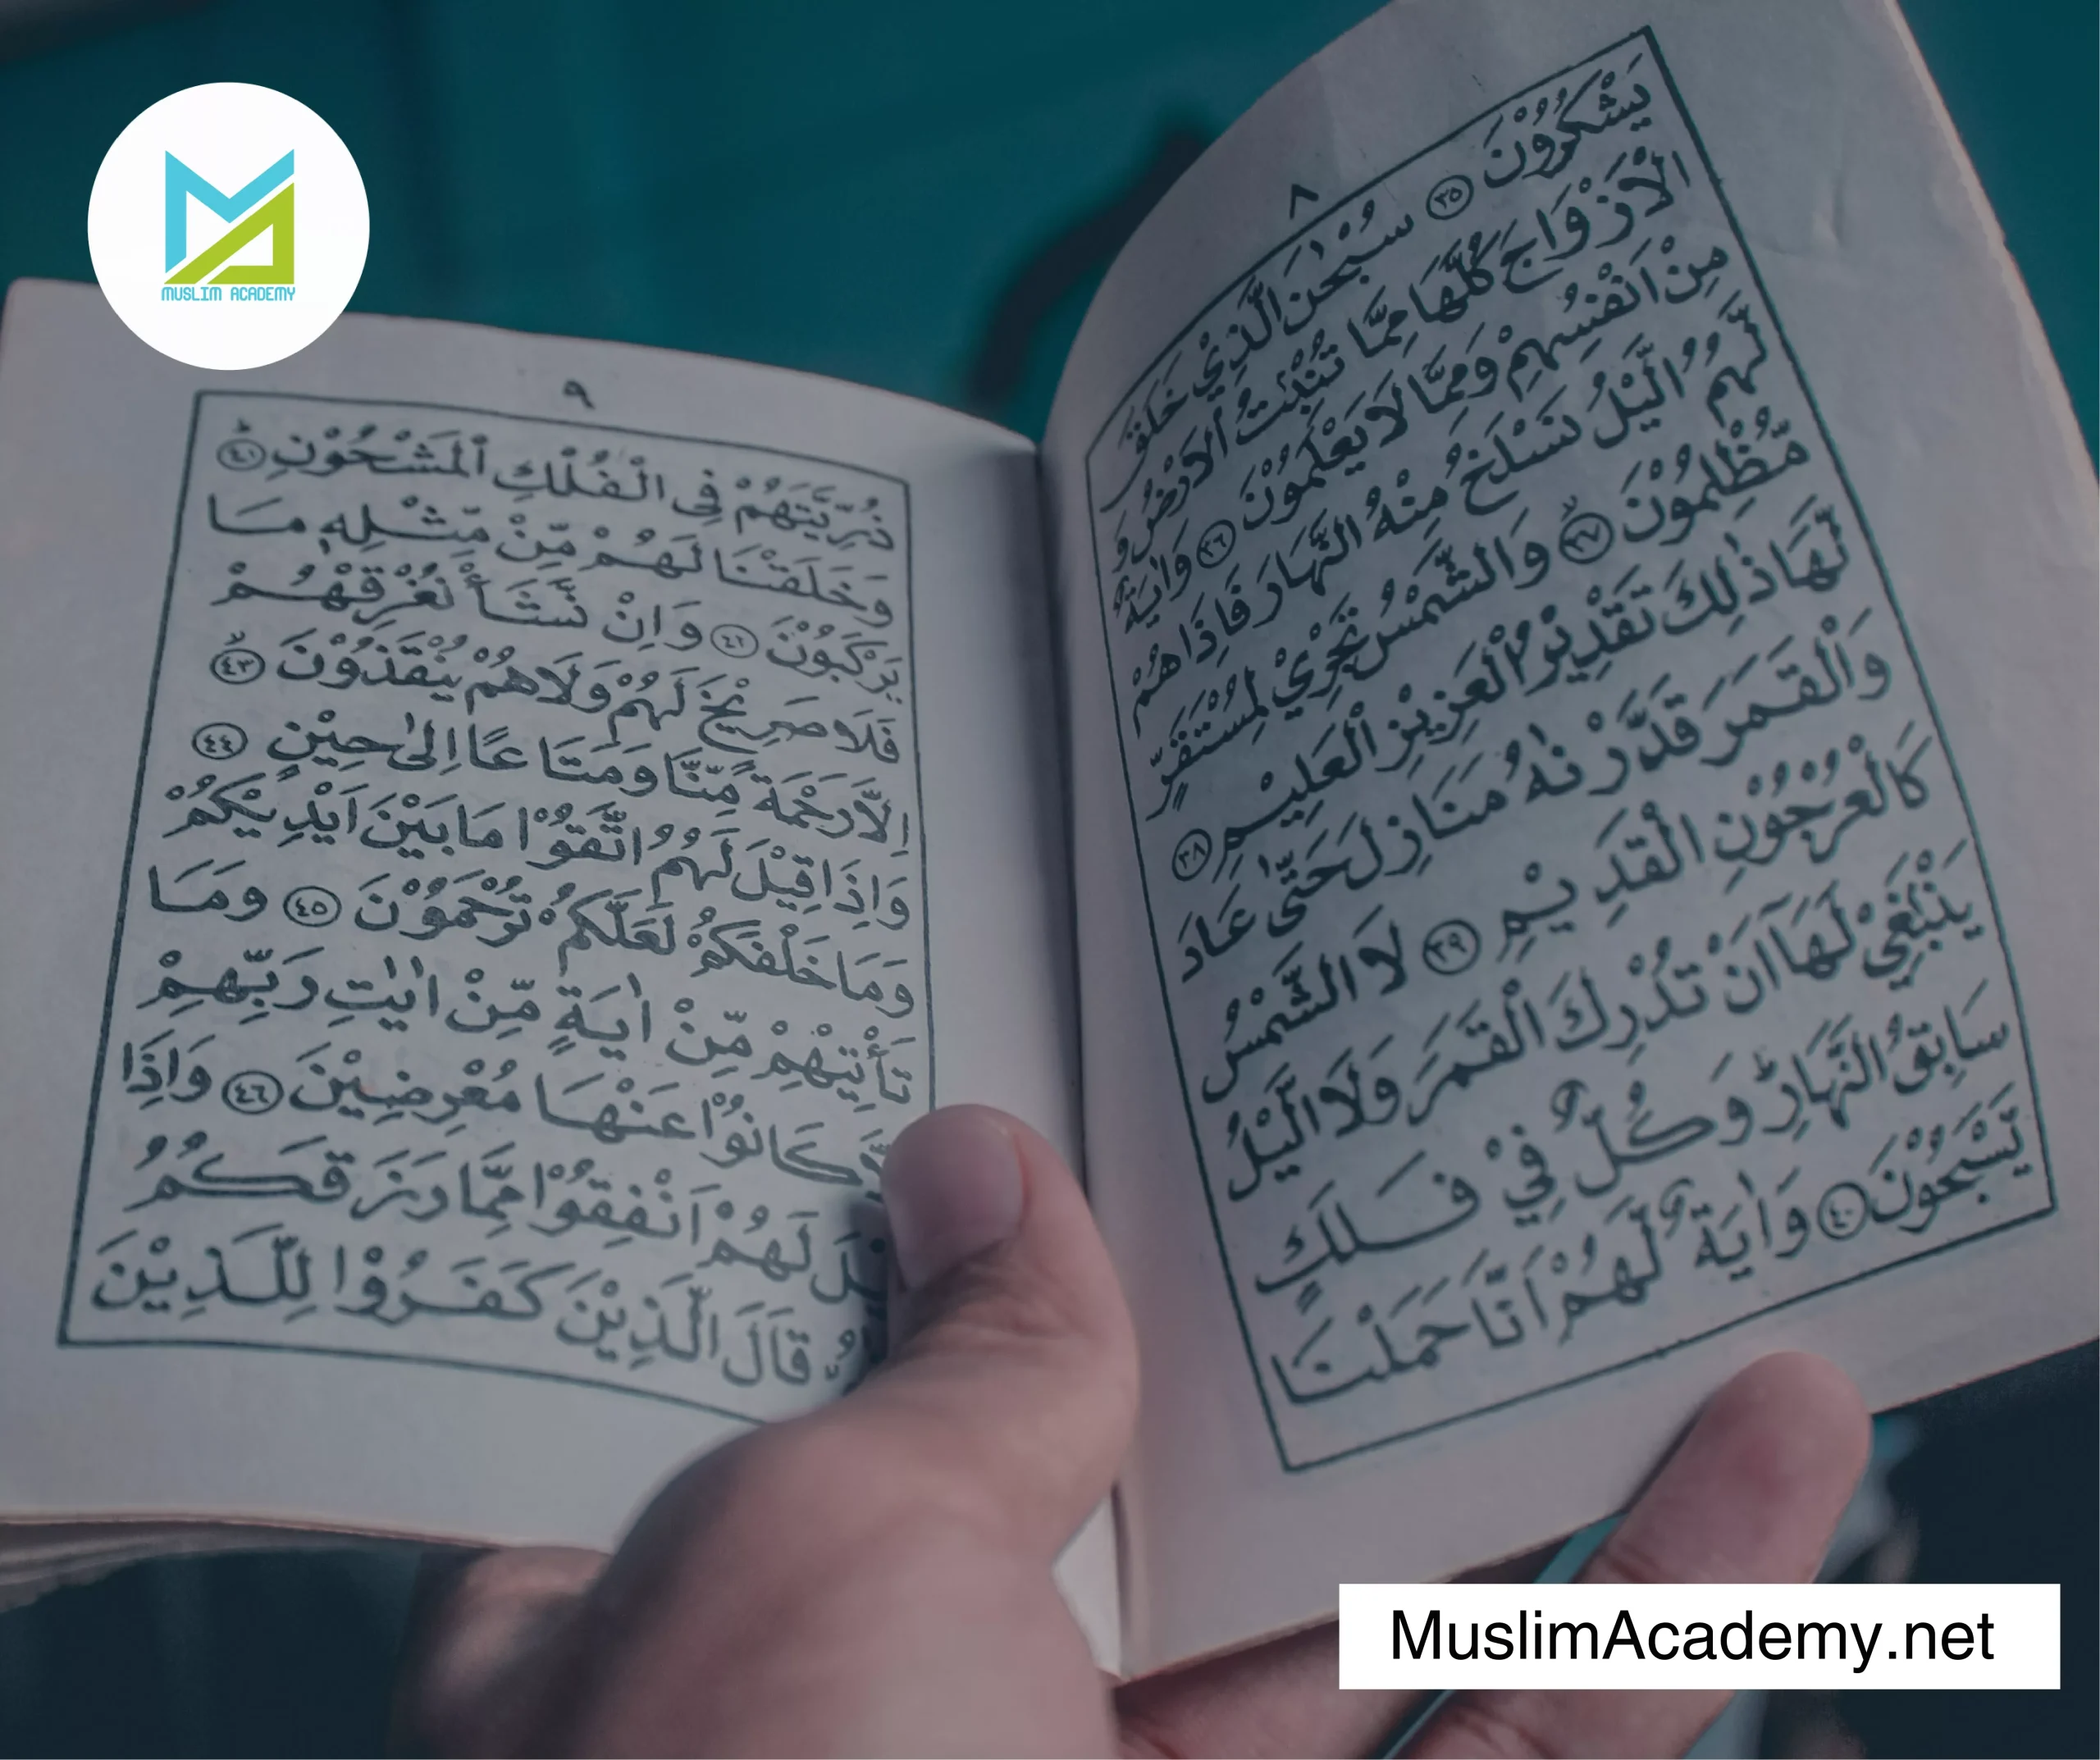 MUSLIM ACADEMY
٨
يَشْكُرُوْنَ ﴿٣٥﴾ سُبْحٰنَ الَّذِيْ خَلَقَ
الْاَزْوَاجَ كُلَّهَا مِمَّا تُنْۢبِتُ الْاَرْضُ وَ
مِنْ اَنْفُسِهِمْ وَمِمَّا لَا يَعْلَمُوْنَ ﴿٣٦﴾ وَاٰيَةٌ
لَّهُمُ الَّيْلُ نَسْلَخُ مِنْهُ النَّهَارَ فَاِذَا هُمْ
مُّظْلِمُوْنَ ﴿٣٧﴾ وَالشَّمْسُ تَجْرِيْ لِمُسْتَقَرٍّ
لَّهَا ذٰلِكَ تَقْدِيْرُ الْعَزِيْزِ الْعَلِيْمِ ﴿٣٨﴾
وَالْقَمَرَ قَدَّرْنٰهُ مَنَازِلَ حَتّٰى عَادَ
كَالْعُرْجُوْنِ الْقَدِيْمِ ﴿٣٩﴾ لَا الشَّمْسُ
يَنْۢبَغِيْ لَهَا اَنْ تُدْرِكَ الْقَمَرَ وَلَا الَّيْلُ
سَابِقُ النَّهَارِ ؕ وَكُلٌّ فِيْ فَلَكٍ
يَّسْبَحُوْنَ ﴿٤٠﴾ وَاٰيَةٌ لَّهُمْ اَنَّا حَمَلْنَا
٩
ذُرِّيَّتَهُمْ فِى الْفُلْكِ الْمَشْحُوْنِ ﴿٤١﴾
وَخَلَقْنَا لَهُمْ مِّنْ مِّثْلِهٖ مَا
يَرْكَبُوْنَ ﴿٤٢﴾ وَاِنْ نَّشَأْ نُغْرِقْهُمْ
فَلَا صَرِيْخَ لَهُمْ وَلَا هُمْ يُنْقَذُوْنَ ﴿٤٣﴾
اِلَّا رَحْمَةً مِّنَّا وَمَتَاعًا اِلٰى حِيْنٍ ﴿٤٤﴾
وَاِذَا قِيْلَ لَهُمُ اتَّقُوْا مَا بَيْنَ اَيْدِيْكُمْ
وَمَا خَلْفَكُمْ لَعَلَّكُمْ تُرْحَمُوْنَ ﴿٤٥﴾ وَمَا
تَأْتِيْهِمْ مِّنْ اٰيَةٍ مِّنْ اٰيٰتِ رَبِّهِمْ
كَانُوْا عَنْهَا مُعْرِضِيْنَ ﴿٤٦﴾ وَاِذَا
لَهُمْ اَنْفِقُوْا مِمَّا رَزَقَكُمُ
قَالَ الَّذِيْنَ كَفَرُوْا لِلَّذِيْنَ
MuslimAcademy.net